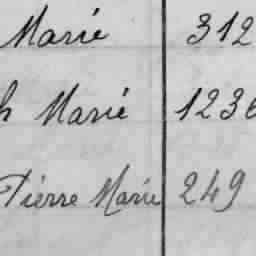 Marié 312
h Marié 1236
Pierre Marie 249